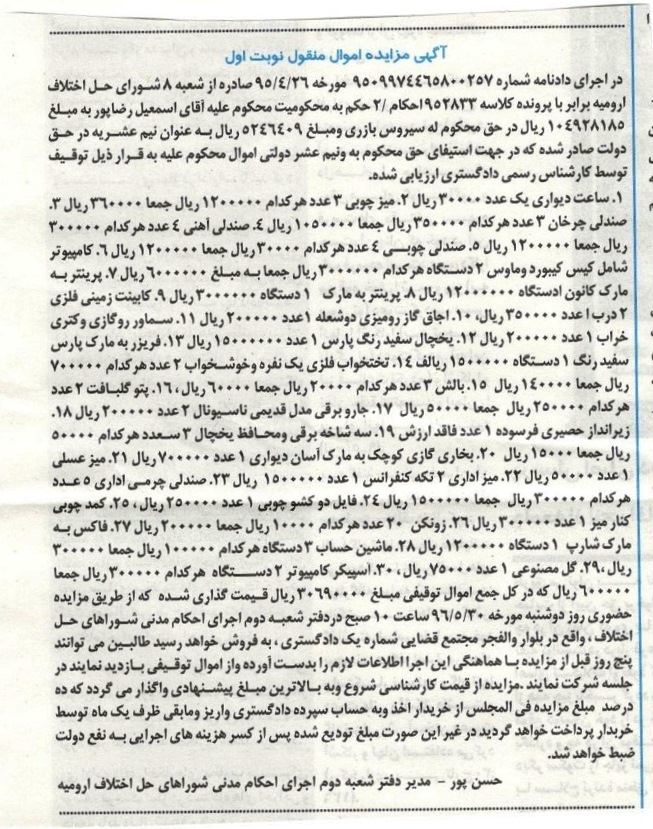 آگهی مزایده اموال منقول نوبت اول
در اجرای دادنامه شماره ۹۵۰۹۹۷۴۴۶۵۸۰۰۲۵۷ مورخه ۹۵/۴/۲۶ صادره از شعبه ۸ شورای حل اختلاف
ارومیه برابر با پرونده کلاسه ۹۵۲۸۳۳ احکام /۲ حکم به محکومیت محکوم علیه آقای اسمعیل رضاپور به مبلغ
۱۰۴۹۲۸۱۸۵ ریال در حق محکوم له سیروس بازری ومبلغ ۵۲۴۶۴۰۹ ریال به عنوان نیم عشریه در حق
دولت صادر شده که در جهت استیفای حق محکوم به ونیم عشر دولتی اموال محکوم علیه به قرار ذیل توقیف
توسط کارشناس رسمی دادگستری ارزیابی شده.
۱. ساعت دیواری یک عدد ۳۰۰۰۰ ریال ۲. میز چوبی ۳ عدد هرکدام ۱۲۰۰۰۰۰ ریال جمعا ۳۶۰۰۰۰ ریال ۳.
صندلی چرخان ۳ عدد هرکدام ۳۵۰۰۰۰ ریال جمعا ۱۰۵۰۰۰۰ ریال ۴. صندلی آهنی ۴ عدد هرکدام ۳۰۰۰۰۰
ریال جمعا ۱۲۰۰۰۰۰ ریال ۵. صندلی چوبی ۴ عدد هرکدام ۳۰۰۰۰ ریال جمعا ۱۲۰۰۰۰۰ ریال ۶. کامپیوتر
شامل کیس کیبورد وماوس ۲ دستگاه هرکدام ۳۰۰۰۰۰۰ ریال جمعا به مبلغ ۶۰۰۰۰۰۰ ریال ۷. پرینتر به
مارک کانون ۱دستگاه ۱۲۰۰۰۰۰۰ ریال ۸. پرینتر به مارک ۱ دستگاه ۳۰۰۰۰۰۰ ریال ۹. کابینت زمینی فلزی
۲ درب ۱عدد ۳۵۰۰۰۰ ریال، ۱۰. اجاق گاز رومیزی دوشعله ۱عدد ۲۰۰۰۰۰ ریال ۱۱. سماور روگازی وکتری
خراب ۱ عدد ۲۰۰۰۰۰ ریال ۱۲. یخچال سفید رنگ پارس ۱ عدد ۱۵۰۰۰۰۰۰ ریال ۱۳. فریزر به مارک پارس
سفید رنگ ۱ دستگاه ۱۵۰۰۰۰۰ ریالف ۱۴. تختخواب فلزی یک نفره وخوشخواب ۲ عدد هرکدام ۷۰۰۰۰۰
ریال جمعا ۱۴۰۰۰۰ ریال ۱۵. بالش ۳ عدد هرکدام ۲۰۰۰۰ ریال جمعا ۶۰۰۰۰ ریال، ۱۶. پتو گلبافت ۲ عدد
هرکدام ۲۵۰۰۰۰ ریال جمعا ۵۰۰۰۰ ریال ۱۷. جارو برقی مدل قدیمی ناسیونال ۲ عدد ۲۰۰۰۰۰ ریال ۱۸.
زیرانداز حصیری فرسوده ۱ عدد فاقد ارزش ۱۹. سه شاخه برقی ومحافظ یخچال ۳ سعدد هرکدام ۵۰۰۰۰
ریال جمعا ۱۵۰۰۰ ریال ۲۰. بخاری گازی کوچک به مارک آسان دیواری ۱ عدد ۷۰۰۰۰۰ ریال ۲۱. میز عسلی
۱ عدد ۵۰۰۰۰ ریال ۲۲. میز اداری ۲ تکه کنفرانس ۱ عدد ۱۵۰۰۰۰۰ ریال ۲۳. صندلی چرمی اداری ۵ عدد
هرکدام ۳۰۰۰۰۰ ریال جمعا ۱۵۰۰۰۰۰ ریال ۲۴. فایل دو کشو چوبی ۱ عدد ۲۵۰۰۰۰ ریال، ۲۵. کمد چوبی
کنار میز ۱ عدد ۳۰۰۰۰۰ ریال ۲۶. زونکن ۲۰ عدد هرکدام ۱۰۰۰۰ ریال جمعا ۲۰۰۰۰۰ ریال ۲۷. فاکس به
مارک شارپ ۱ دستگاه ۱۲۰۰۰۰۰ ریال ۲۸. ماشین حساب ۳ دستگاه هرکدام ۱۰۰۰۰۰ ریال جمعا ۳۰۰۰۰۰
ریال، ۲۹. گل مصنوعی ۱ عدد ۷۵۰۰۰ ریال، ۳۰. اسپیکر کامپیوتر ۲ دستگاه هرکدام ۳۰۰۰۰۰ ریال جمعا
۶۰۰۰۰۰ ریال که در کل جمع اموال توقیفی مبلغ ۳۰۶۹۰۰۰۰ ریال قیمت گذاری شده که از طریق مزایده
حضوری روز دوشنبه مورخه ۹۶/۵/۳۰ ساعت ۱۰ صبح دردفتر شعبه دوم اجرای احکام مدنی شوراهای حل
اختلاف، واقع در بلوار والفجر مجتمع قضایی شماره یک دادگستری، به فروش خواهد رسید طالبین می توانند
پنج روز قبل از مزایده با هماهنگی این اجرا اطلاعات لازم را بدست آورده واز اموال توقیفی بازدید نمایند در
جلسه شرکت نمایند .مزایده از قیمت کارشناسی شروع وبه بالاترین مبلغ پیشنهادی واگذار می گردد که ده
درصد مبلغ مزایده فی المجلس از خریدار اخذ وبه حساب سپرده دادگستری واریز ومابقی ظرف یک ماه توسط
خریدار پرداخت خواهد گردید در غیر این صورت مبلغ تودیع شده پس از کسر هزینه های اجرایی به نفع دولت
ضبط خواهد شد.
حسن پور - مدیر دفتر شعبه دوم اجرای احکام مدنی شوراهای حل اختلاف ارومیه